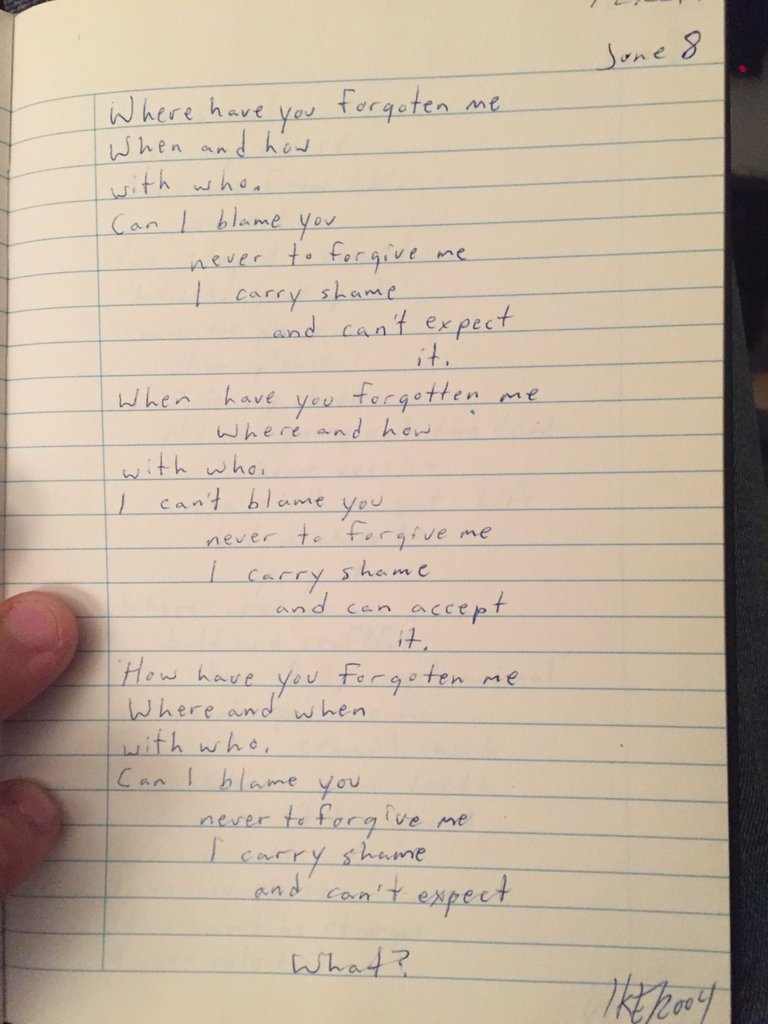 June 8
Where have you forgoten me
When and how
with who.
Can I blame you
never to forgive me
I carry shame
and can't expect
it.
When have you forgotten me
where and how
with who.
I can't blame you
never to forgive me
I carry shame
and can accept
it.
How have you forgoten me
Where and when
with who.
Can I blame you
never to forgive me
I carry shame
and can't expect
What?
IKE/2004